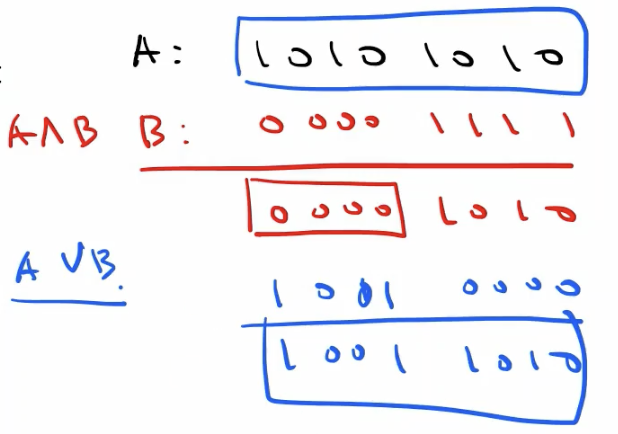 A: 1010 1010
A∧B B: 0000 1111
0000 1010
A∨B. 1001 0000
1001 1010